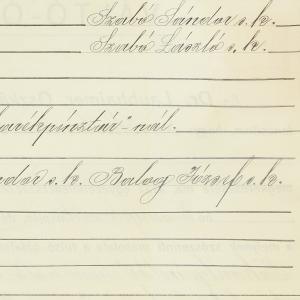 Szabó Sándor s. k.
Szabó László s. k.
takarékpénztár"-nál.
ndor s. k. Balog József s. k.